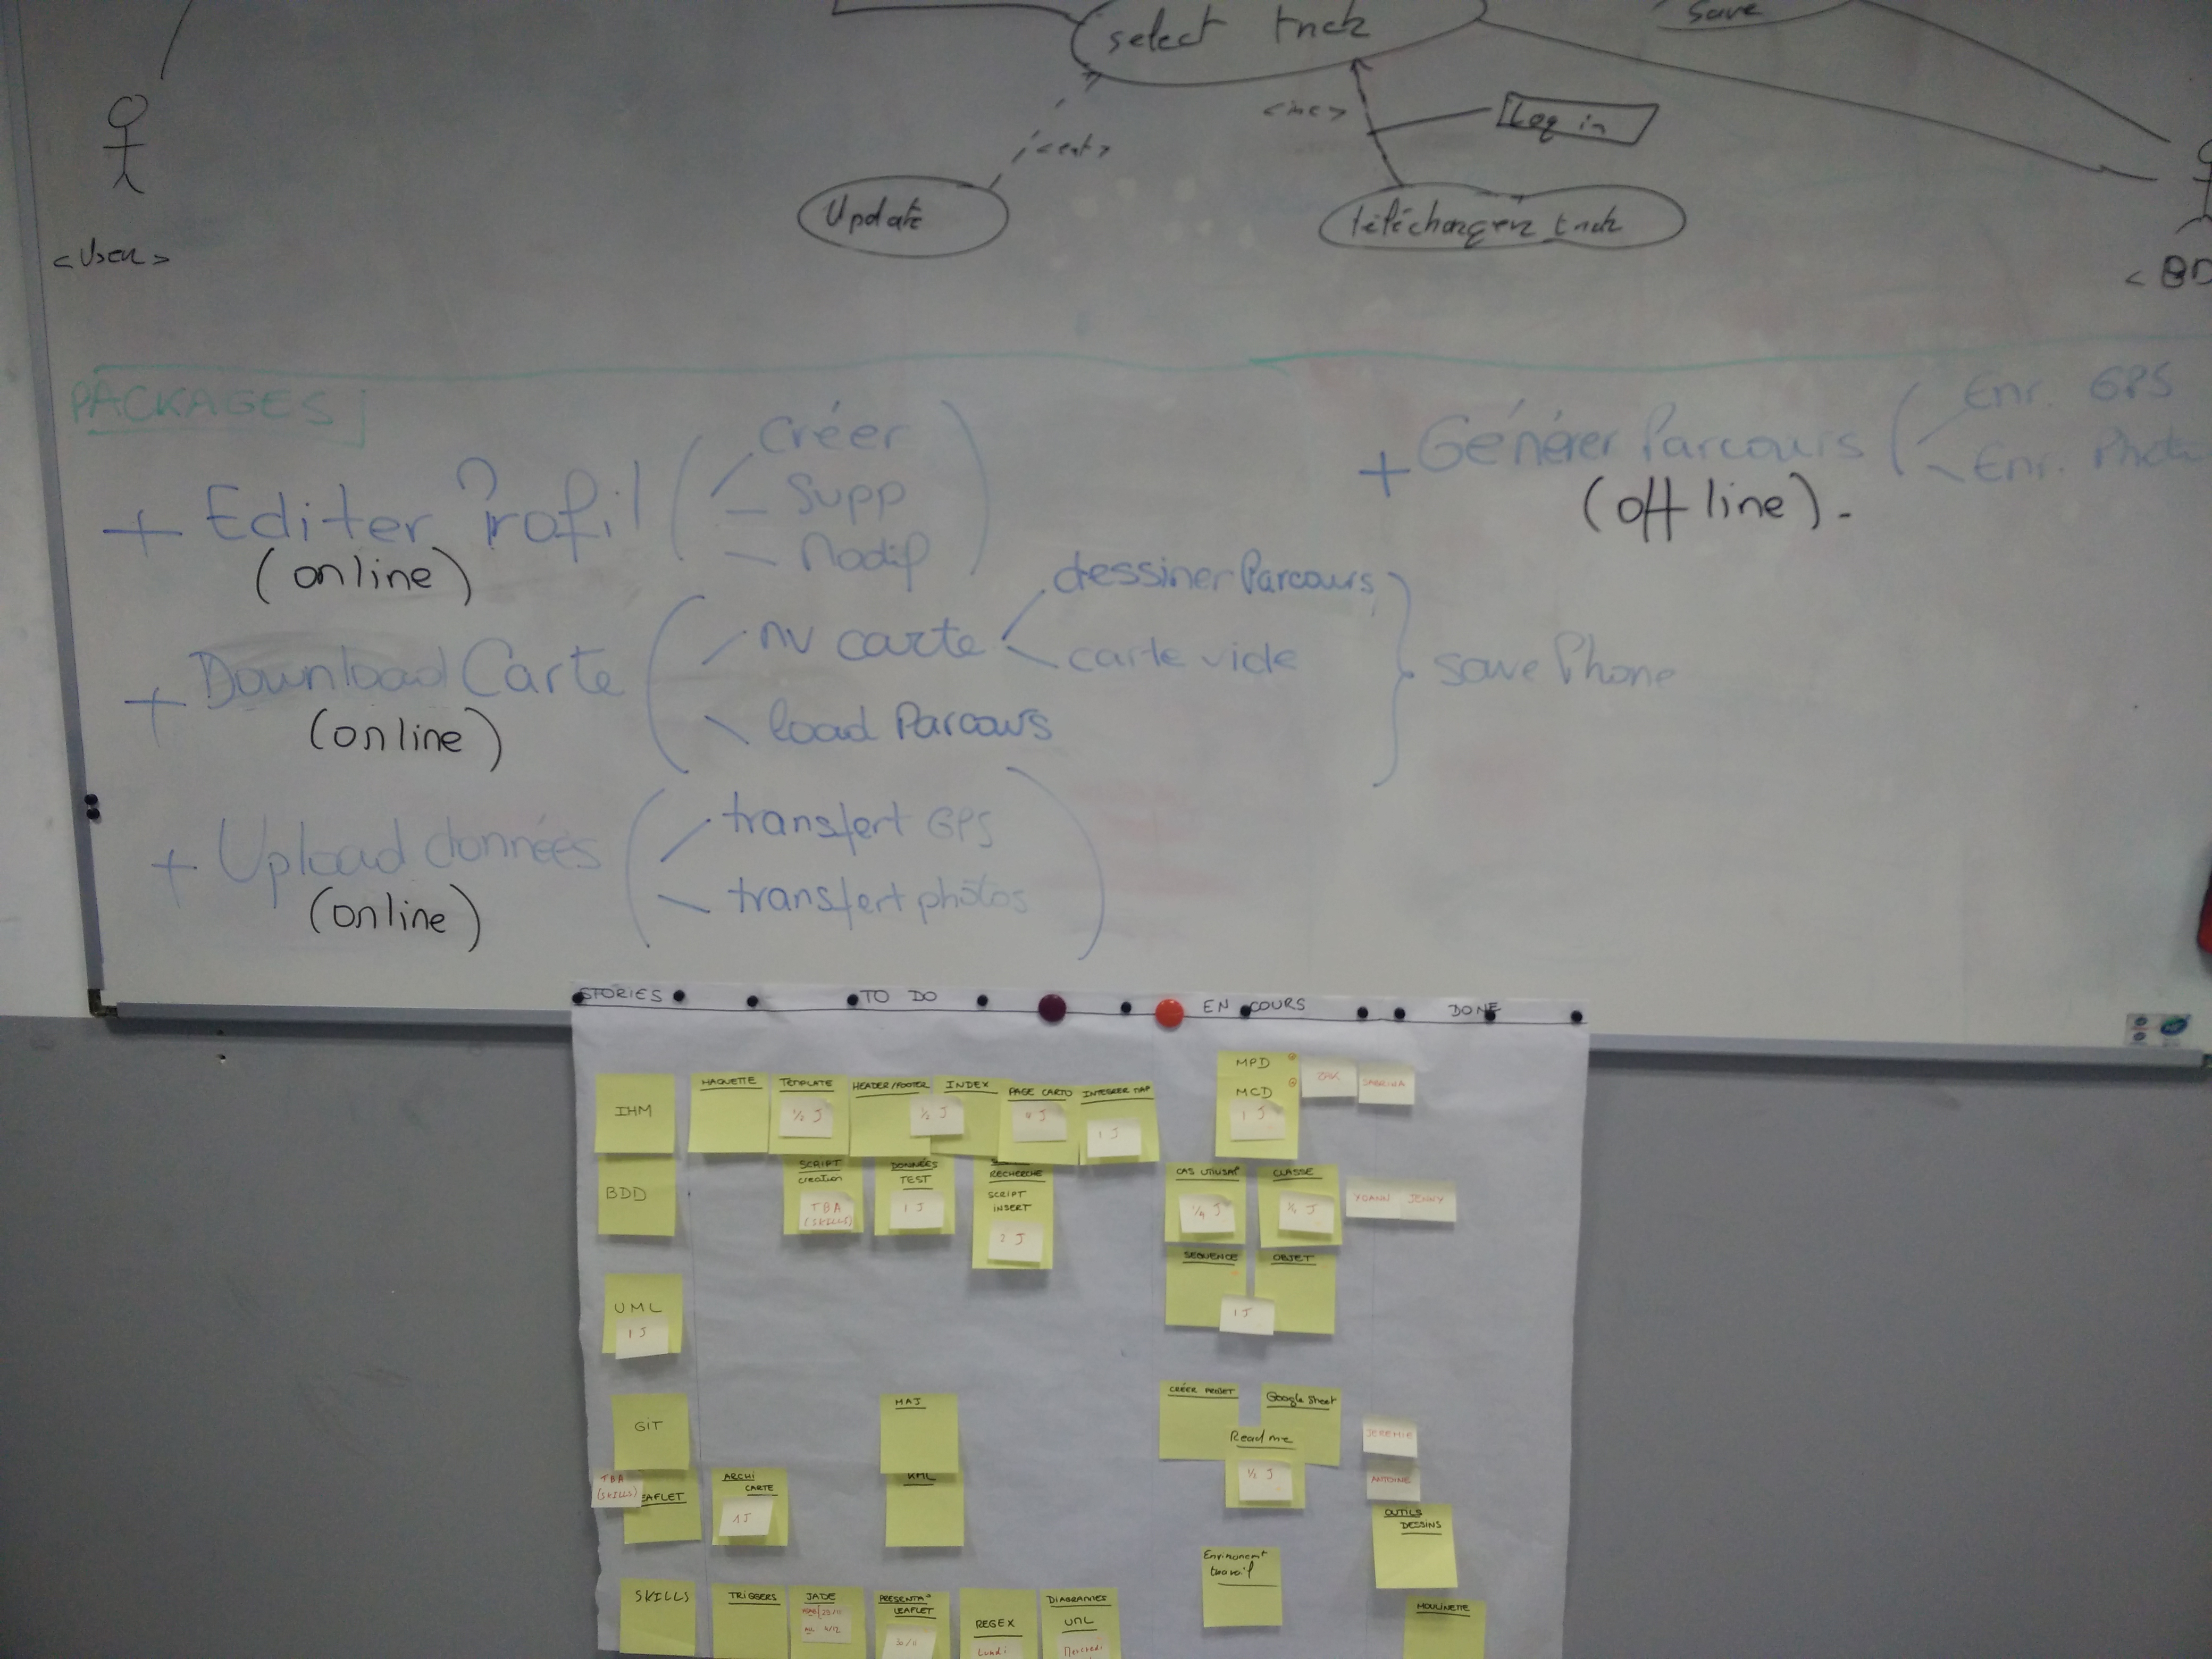 select track
Save
<inc>
Log in
<ext>
Update
télécharger track
<User>
< BD
PACKAGES
+ Editer Profil
(online)
Créer
Supp
Modif
+ Générer Parcours
(off line).
Enr. GPS
Enr. Photo
+ Download Carte
(online)
nv carte
dessiner Parcours
carte vide
load Parcours
save Phone
+ Upload données
(online)
transfert GPS
transfert photos
STORIES
TO DO
EN COURS
DONE
IHM
MAQUETTE
TEMPLATE
1/2 J
HEADER/FOOTER
INDEX
1/2 J
PAGE CARTO
4 J
INTEGRER MAP
1 J
MPD
MCD
1 J
SABRINA
BDD
SCRIPT
creation
TBA
(SKILLS)
DONNÉES
TEST
1 J
RECHERCHE
SCRIPT
INSERT
2 J
CAS UTILISAT°
1/4 J
CLASSE
YOANN
JENNY
SEQUENCE
OBJET
1 J
UML
1 J
GIT
MAJ
CRÉER PROJET
Google Sheet
Read me
1/2 J
JEREMIE
TBA
(SKILLS)
LEAFLET
ARCHI
CARTE
1 J
KML
ANTOINE
OUTILS
DESSINS
Environement
travail
SKILLS
TRIGGERS
JADE
4/12
PRESENTA°
LEAFLET
30/11
REGEX
Lundi
DIAGRAMMES
UML
Mercredi
MOULINETTE